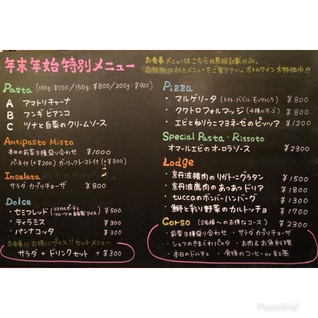 年末年始特別メニュー
お食事メニューはこちらの黒板記載のみ。
Pasta (100g:¥700/150g:¥800/200g:¥900)
A アマトリチャーナ
B フンギビアンコ
C ツナと白菜のクリームソース
Antipasto Misto
本日の前菜3種盛り合わせ ¥1000
Insalata
サラダ カプリチョーザ ¥800
Dolce
・セミフレッド ¥500
・ティラミス ¥300
・パンナコッタ ¥300
サラダ + ドリンクセット +¥300
Pizza
・マルゲリータ ¥800
・クワトロフォルマッジ
・エビとねりらこマヨネーゼのピッツァ ¥1200
Special Pasta・Rissoto
オマールエビのオーロラソース ¥2300
Lodge
・京丹波猪肉のリガトーニグラタン ¥1500
・京丹波鹿肉のあつあつドリア ¥1500
・tuccaのボンバーハンバーグ ¥1300
・鰤と彩り野菜のカルトッチョ ¥1700
Corso
・前菜3種盛り合わせ ・サラダ カプリチョーザ
・お肉とお魚料理
・本日のドルチェ ・食後のコーヒーor紅茶
¥2300